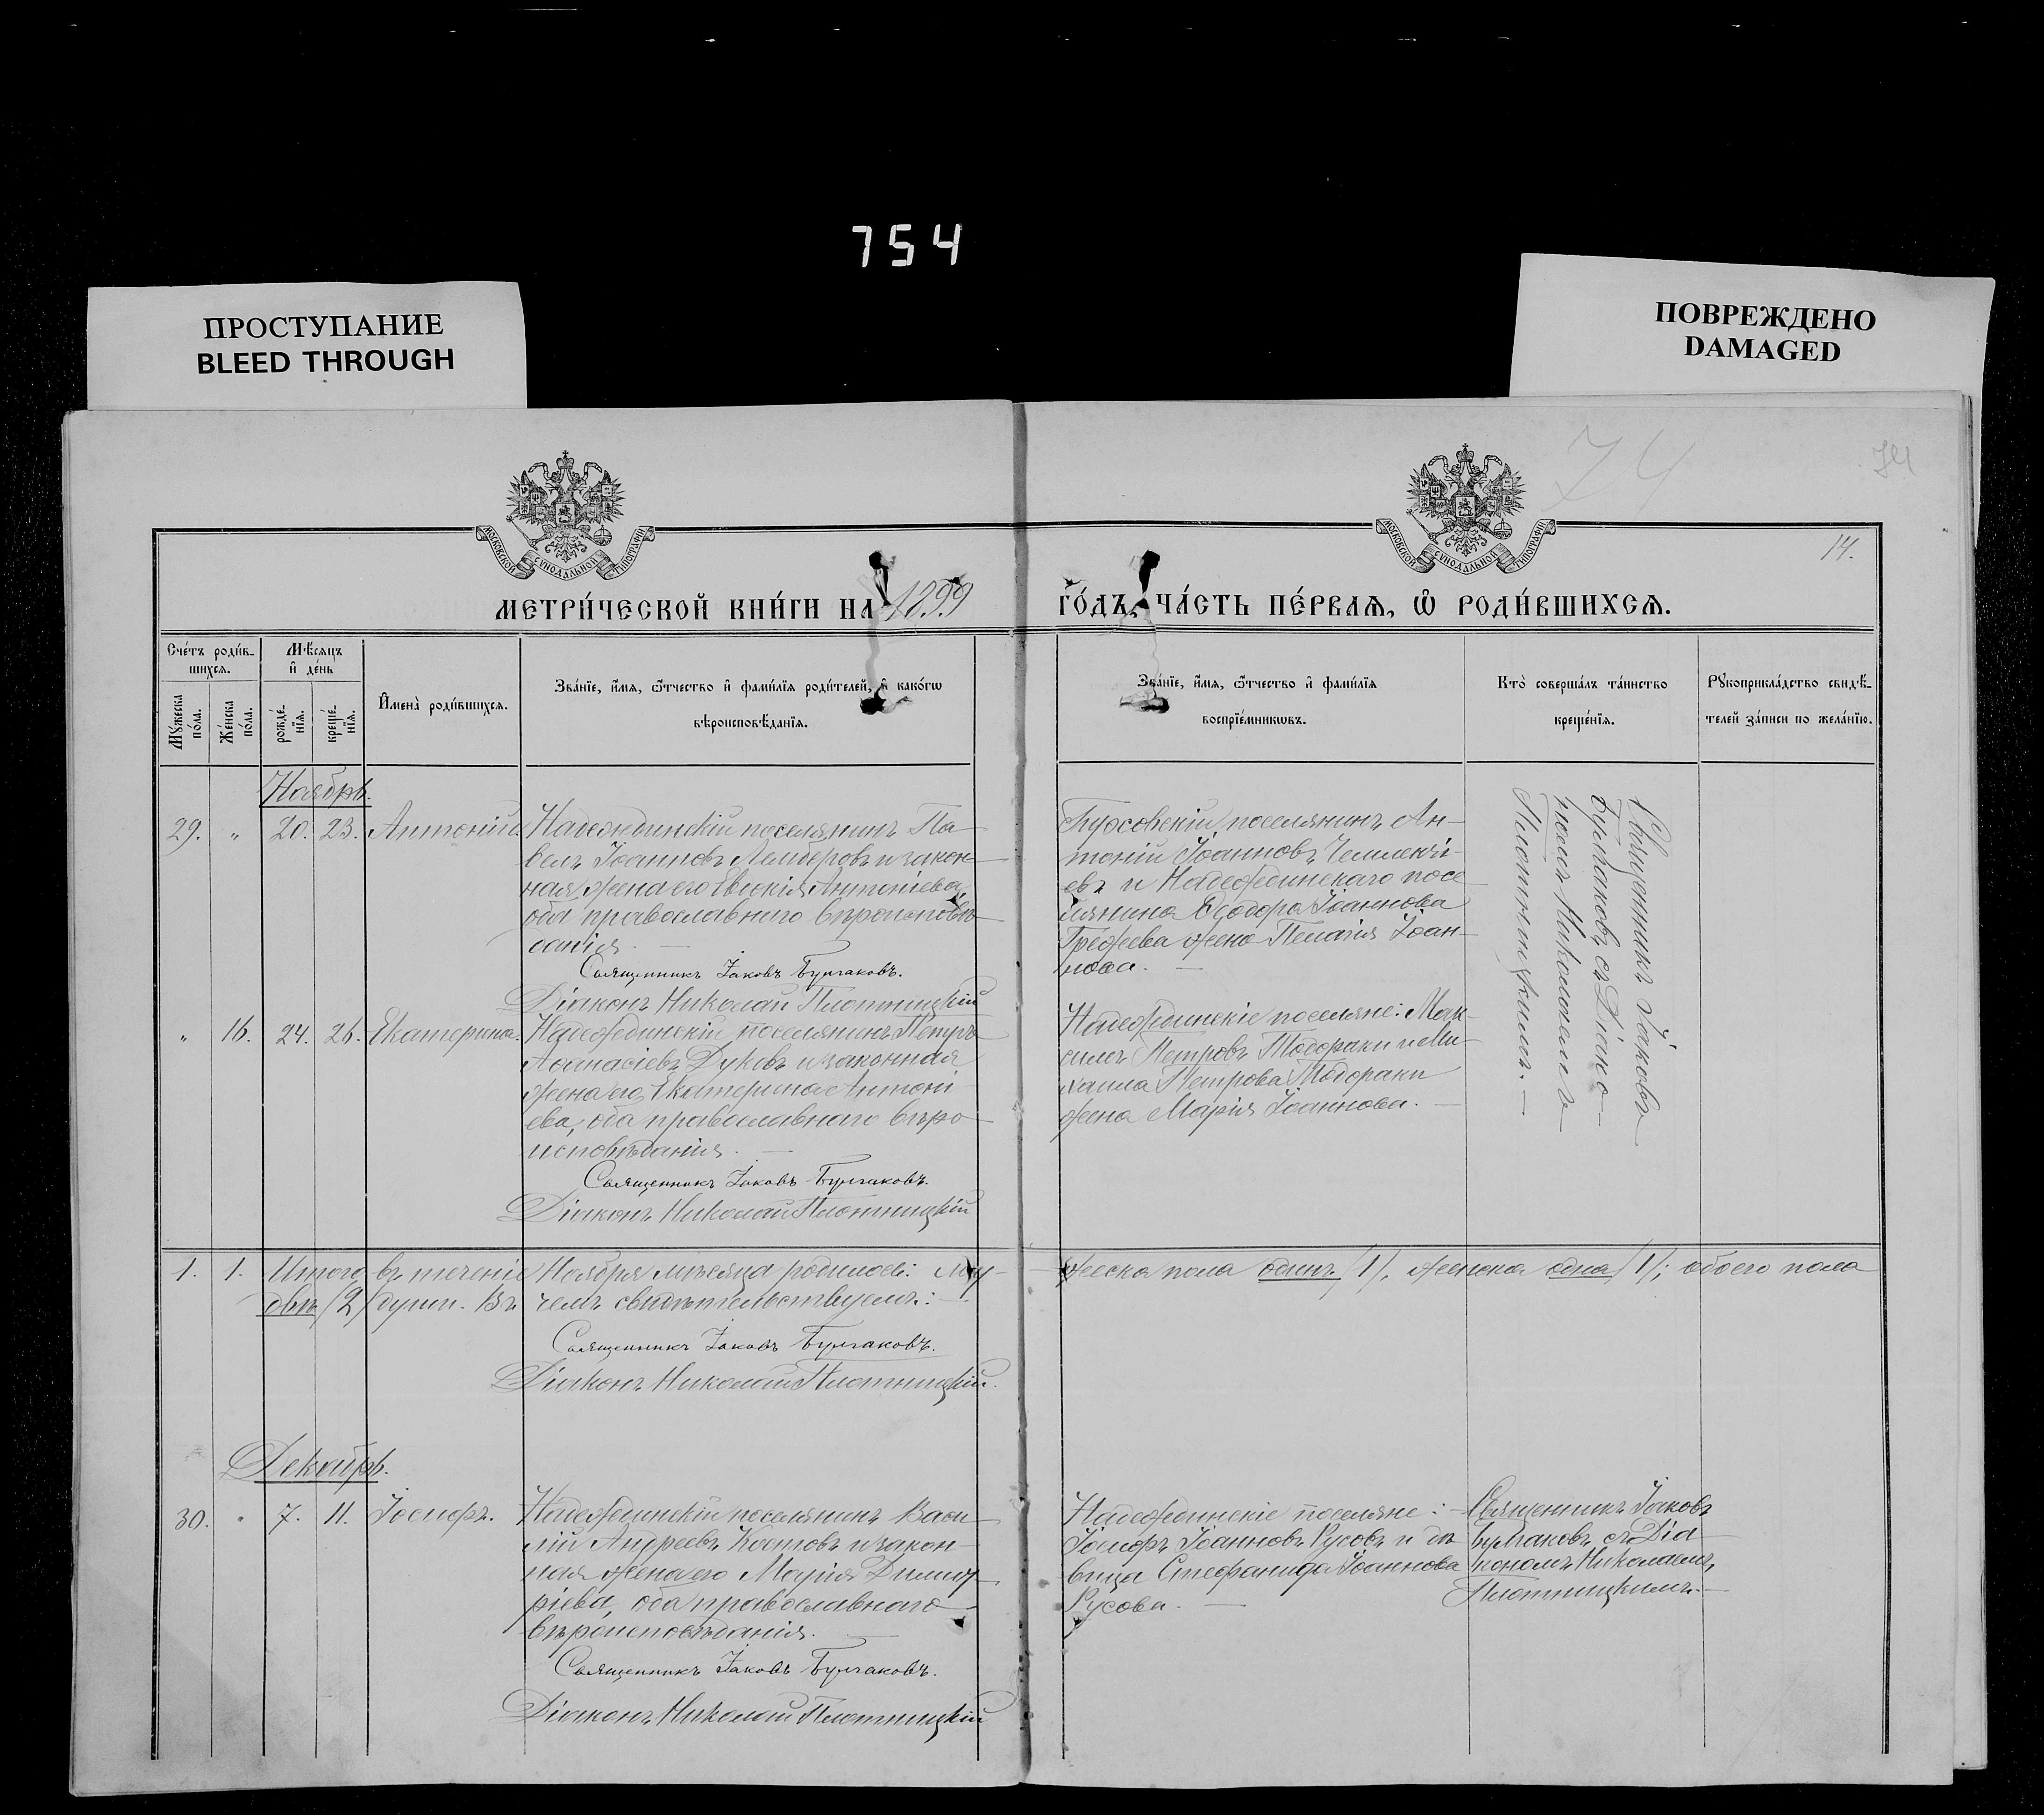 754
ПРОСТУПАНИЕ
BLEED THROUGH
ПОВРЕЖДЕНО
DAMAGED
74
74
14.
МОСКОВСКОЙ СУНОДАЛЬНОЙ ТИПОГРАФІИ
МОСКОВСКОЙ СУНОДАЛЬНОЙ ТИПОГРАФІИ
МЕТРИ́ЧЕСКОЙ КНИ́ГИ НА 1899
ГО́ДЪ, ЧА́СТЬ ПЕ́РВАЯ, Ѽ РОДИ́ВШИХСЯ.
Сче́тъ роди́в-
шихся.
Мꙋ́жеска по́ла.
Же́нска по́ла.
Мѣ́сяцъ
и҆ де́нь
рожде́-
нїя.
креще́-
нїя.
И҆мена̀ роди́вшихся.
Зва́нїе, и҆́мя, ѻ҆́тчество и҆ фами́лїя роди́телей, и҆ како́гѡ
вѣроисповѣ́данїя.
Зва́нїе, и҆́мя, ѻ҆́тчество и҆ фами́лїя
воспрїе́мникѡвъ.
Кто̀ соверша́лъ та́инство
креще́нїя.
Рꙋкоприкла́дство свидѣ́-
телей за́писи по жела́нїю.
Ноябрь.
29. " 20. 23. Антоній
Надеждинскій поселянинъ Па-
велъ Іоанновъ Лемберовъ и закон-
ная жена его Евдокія Антоніева
оба православнаго вѣроисповѣ-
данія.
Священникъ Іаковъ Булгаковъ.
Діаконъ Николай Плотницкій
поселянинъ Ан-
тоній Іоанновъ Чемлекчі-
евъ и Надеждинскаго посе
лянина Ѳеодора Іоаннова
жена Пелагія Іоан-
нова.
Священникъ Іаковъ
Булгаковъ съ Діако-
номъ Николаемъ
Плотницкимъ.
" 16. 24. 26. Екатерина.
Надеждинскій поселянинъ Петръ
Аѳанасіевъ Дуковъ и законная
жена его Екатерина Антоні
ева, оба православнаго вѣро-
исповѣданія.
Священникъ Іаковъ Булгаковъ.
Діаконъ Николай Плотницкій
Надеждинскіе поселяне: Мак-
симъ Петровъ Тодораки и Ми-
хаила Петрова Тодораки
жена Марія Іоаннова.
1. 1. Итого въ теченіе Ноября мѣсяца родилось: му-
жеска пола одинъ /1/, женска одна /1/; обоего пола
двѣ /2/ души. Въ чемъ свидѣтельствуемъ:
Священникъ Іаковъ Булгаковъ.
Діаконъ Николай Плотницкій.
Декабрь.
30. " 7. 11. Іосифъ.
Надеждинскій поселянинъ Васи
лій Андреевъ Костовъ и закон-
ная жена его Марія Димит
ріева, оба православнаго
вѣроисповѣданія.
Священникъ Іаковъ Булгаковъ.
Діаконъ Николай Плотницкій
Надеждинскіе поселяне:
Іосифъ Іоанновъ Русовъ и дѣ
вица Стефанида Іоаннова
Русова.
Священникъ Іаковъ
Булгаковъ съ Діа-
кономъ Николаемъ
Плотницкимъ.